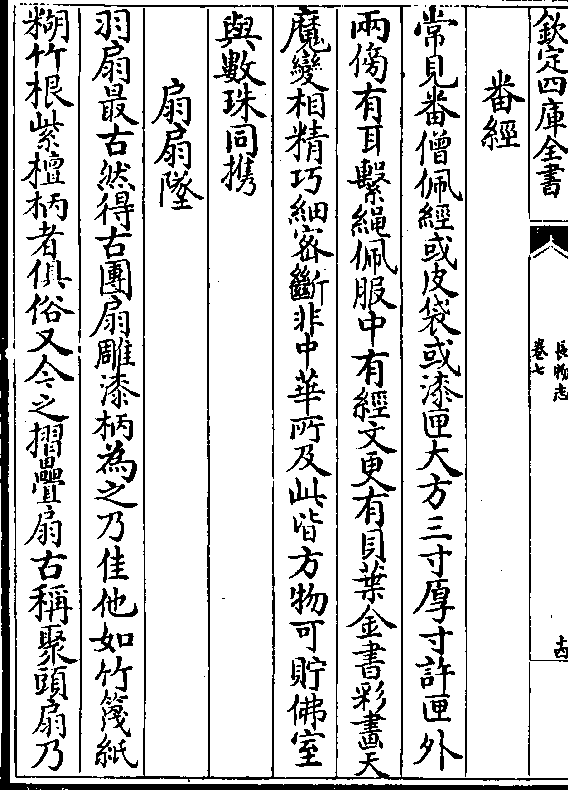 欽定四庫全書
長物志
卷七
十四
番經
常見番僧佩經或皮袋或漆匣大方三寸厚寸許匣外
兩傍有耳繫繩佩服中有經文更有貝葉金書彩畫天
魔變相精巧細密斷非中華所及此皆方物可貯佛室
與數珠同携
扇扇墜
羽扇最古然得古團扇雕漆柄為之乃佳他如竹篾紙
糊竹根紫檀柄者俱俗又今之摺疊扇古稱聚頭扇乃